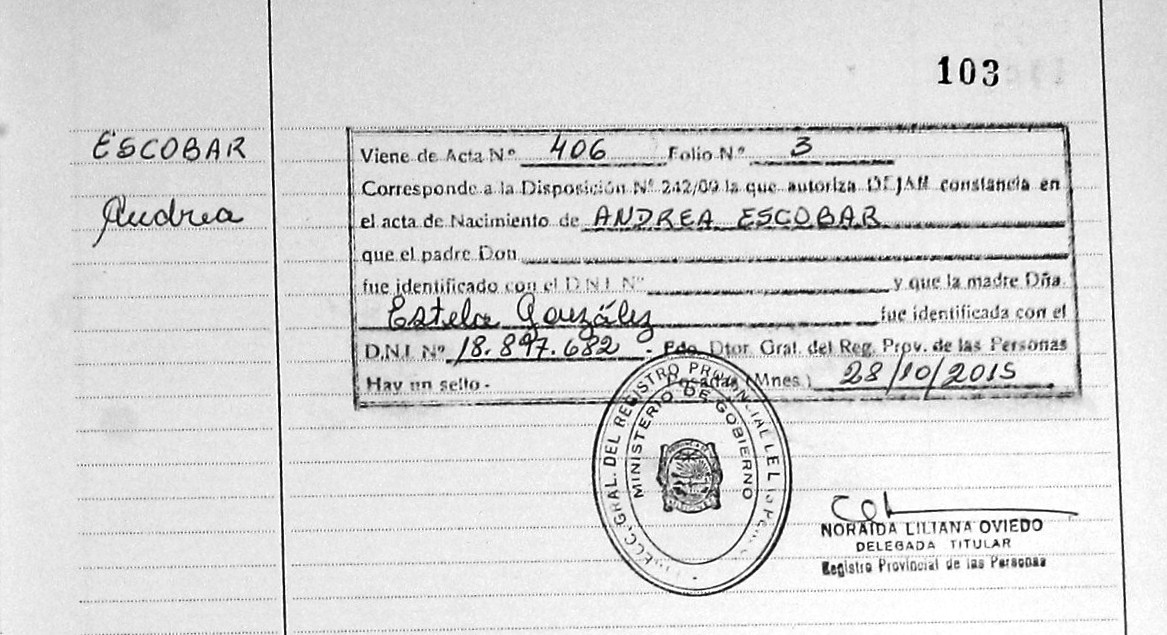 103
ESCOBAR
Andrea
Viene de Acta Nº 406 Folio Nº 3
Corresponde a la Disposición Nº 242/09 la que autoriza DEJAR constancia en
el acta de Nacimiento de ANDREA ESCOBAR
que el padre Don
fue identificado con el D.N.I. Nº y que la madre Dña.
Estela González fue identificada con el
D.N.I. Nº 18.897.682 - Fdo. Dtor. Gral. del Reg. Prov. de las Personas
Hay un sello - Posadas (Mnes.) 28/10/2015
GRAL. DEL REGISTRO PROVINCIAL
MINISTERIO DE GOBIERNO
NORAIDA LILIANA OVIEDO
DELEGADA TITULAR
Registro Provincial de las Personas